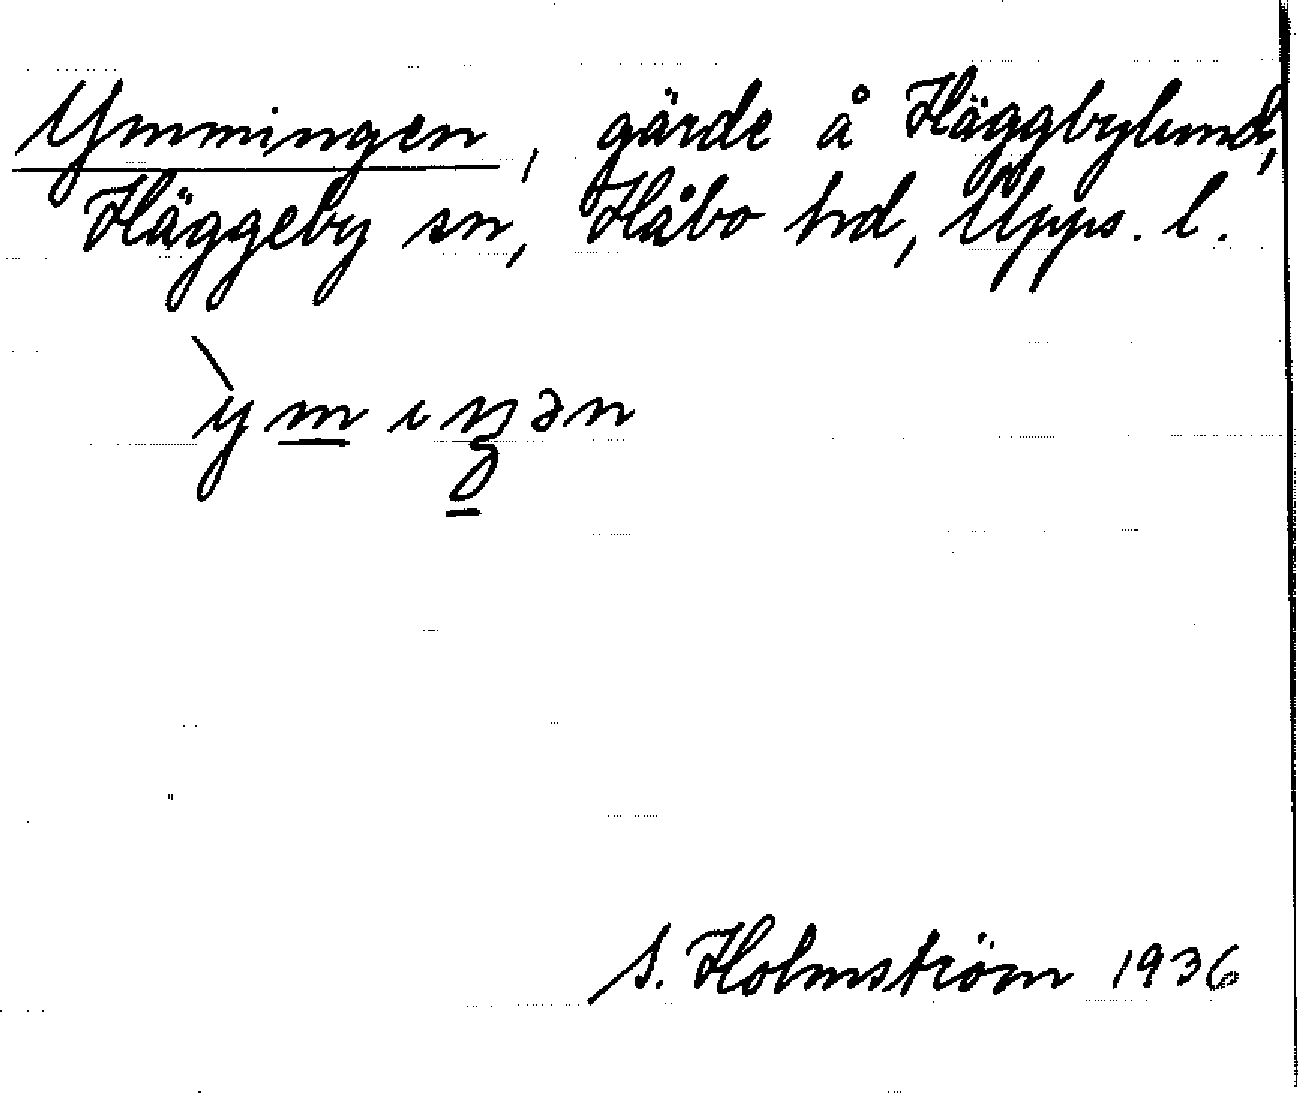 Ymmingen, gärde å Häggbylund,
Häggeby sn, Håbo hd, Upps. l.
ỳmıŋən
S. Holmström 1936